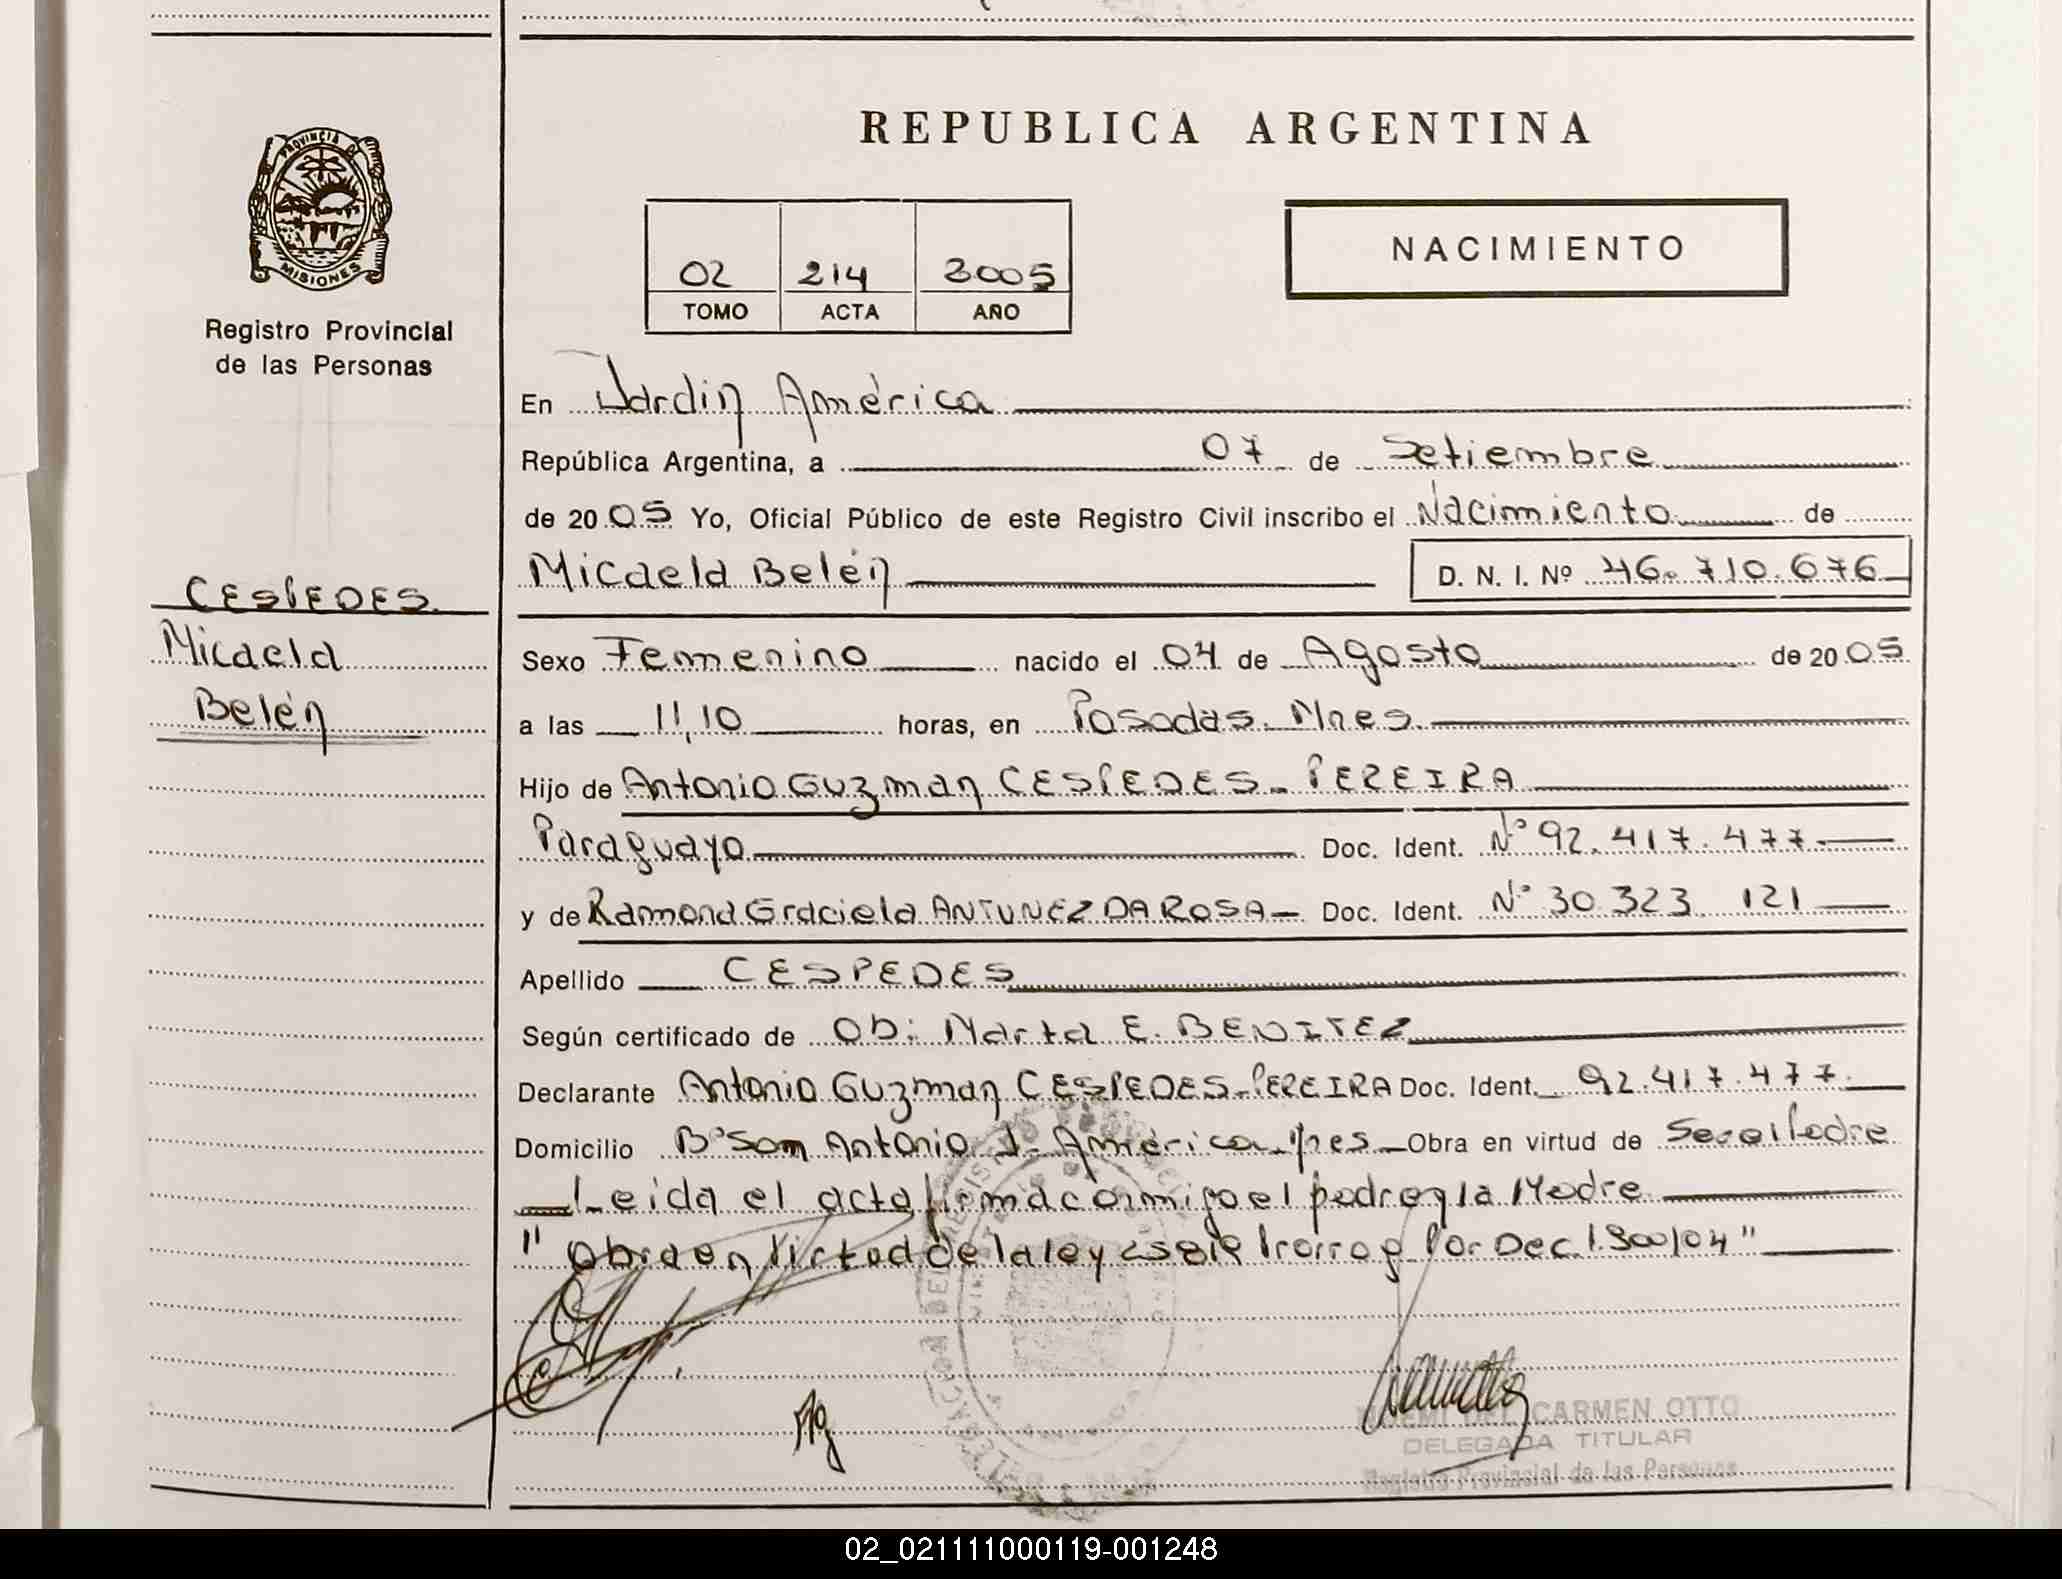 PROVINCIA D
MISIONES
Registro Provincial
de las Personas
CESPEDES.
Micaela
Belén
REPUBLICA ARGENTINA
02 214 2005
TOMO ACTA AÑO
NACIMIENTO
En Jardin América
República Argentina, a 07 de Setiembre
de 20 05 Yo, Oficial Público de este Registro Civil inscribo el Nacimiento de
Micaela Belén D. N. I. Nº 46.710.676
Sexo Femenino nacido el 04 de Agosto de 20 05
a las 11,10 horas, en Posadas. Mnes.
Hijo de Antonio Guzman CESPEDES - PEREIRA
Paraguayo Doc. Ident. Nº 92.417.477
y de Ramona Graciela ANTUNEZ DA ROSA Doc. Ident. Nº 30.323.121
Apellido CESPEDES
Según certificado de Ob: Marta E. BENITEZ
Declarante Antonio Guzman CESPEDES-PEREIRA Doc. Ident. 92.417.477.
Domicilio Bº San Antonio J. América Mnes Obra en virtud de Ser el Padre
Leida el acta firma conmigo el padre y la Madre
" Obra en Virtud de la ley 25819 Prorrog Por Dec. 1.800/04"
NOEMI DEL CARMEN OTTO
DELEGADA TITULAR
Registro Provincial de las Personas
02_021111000119-001248